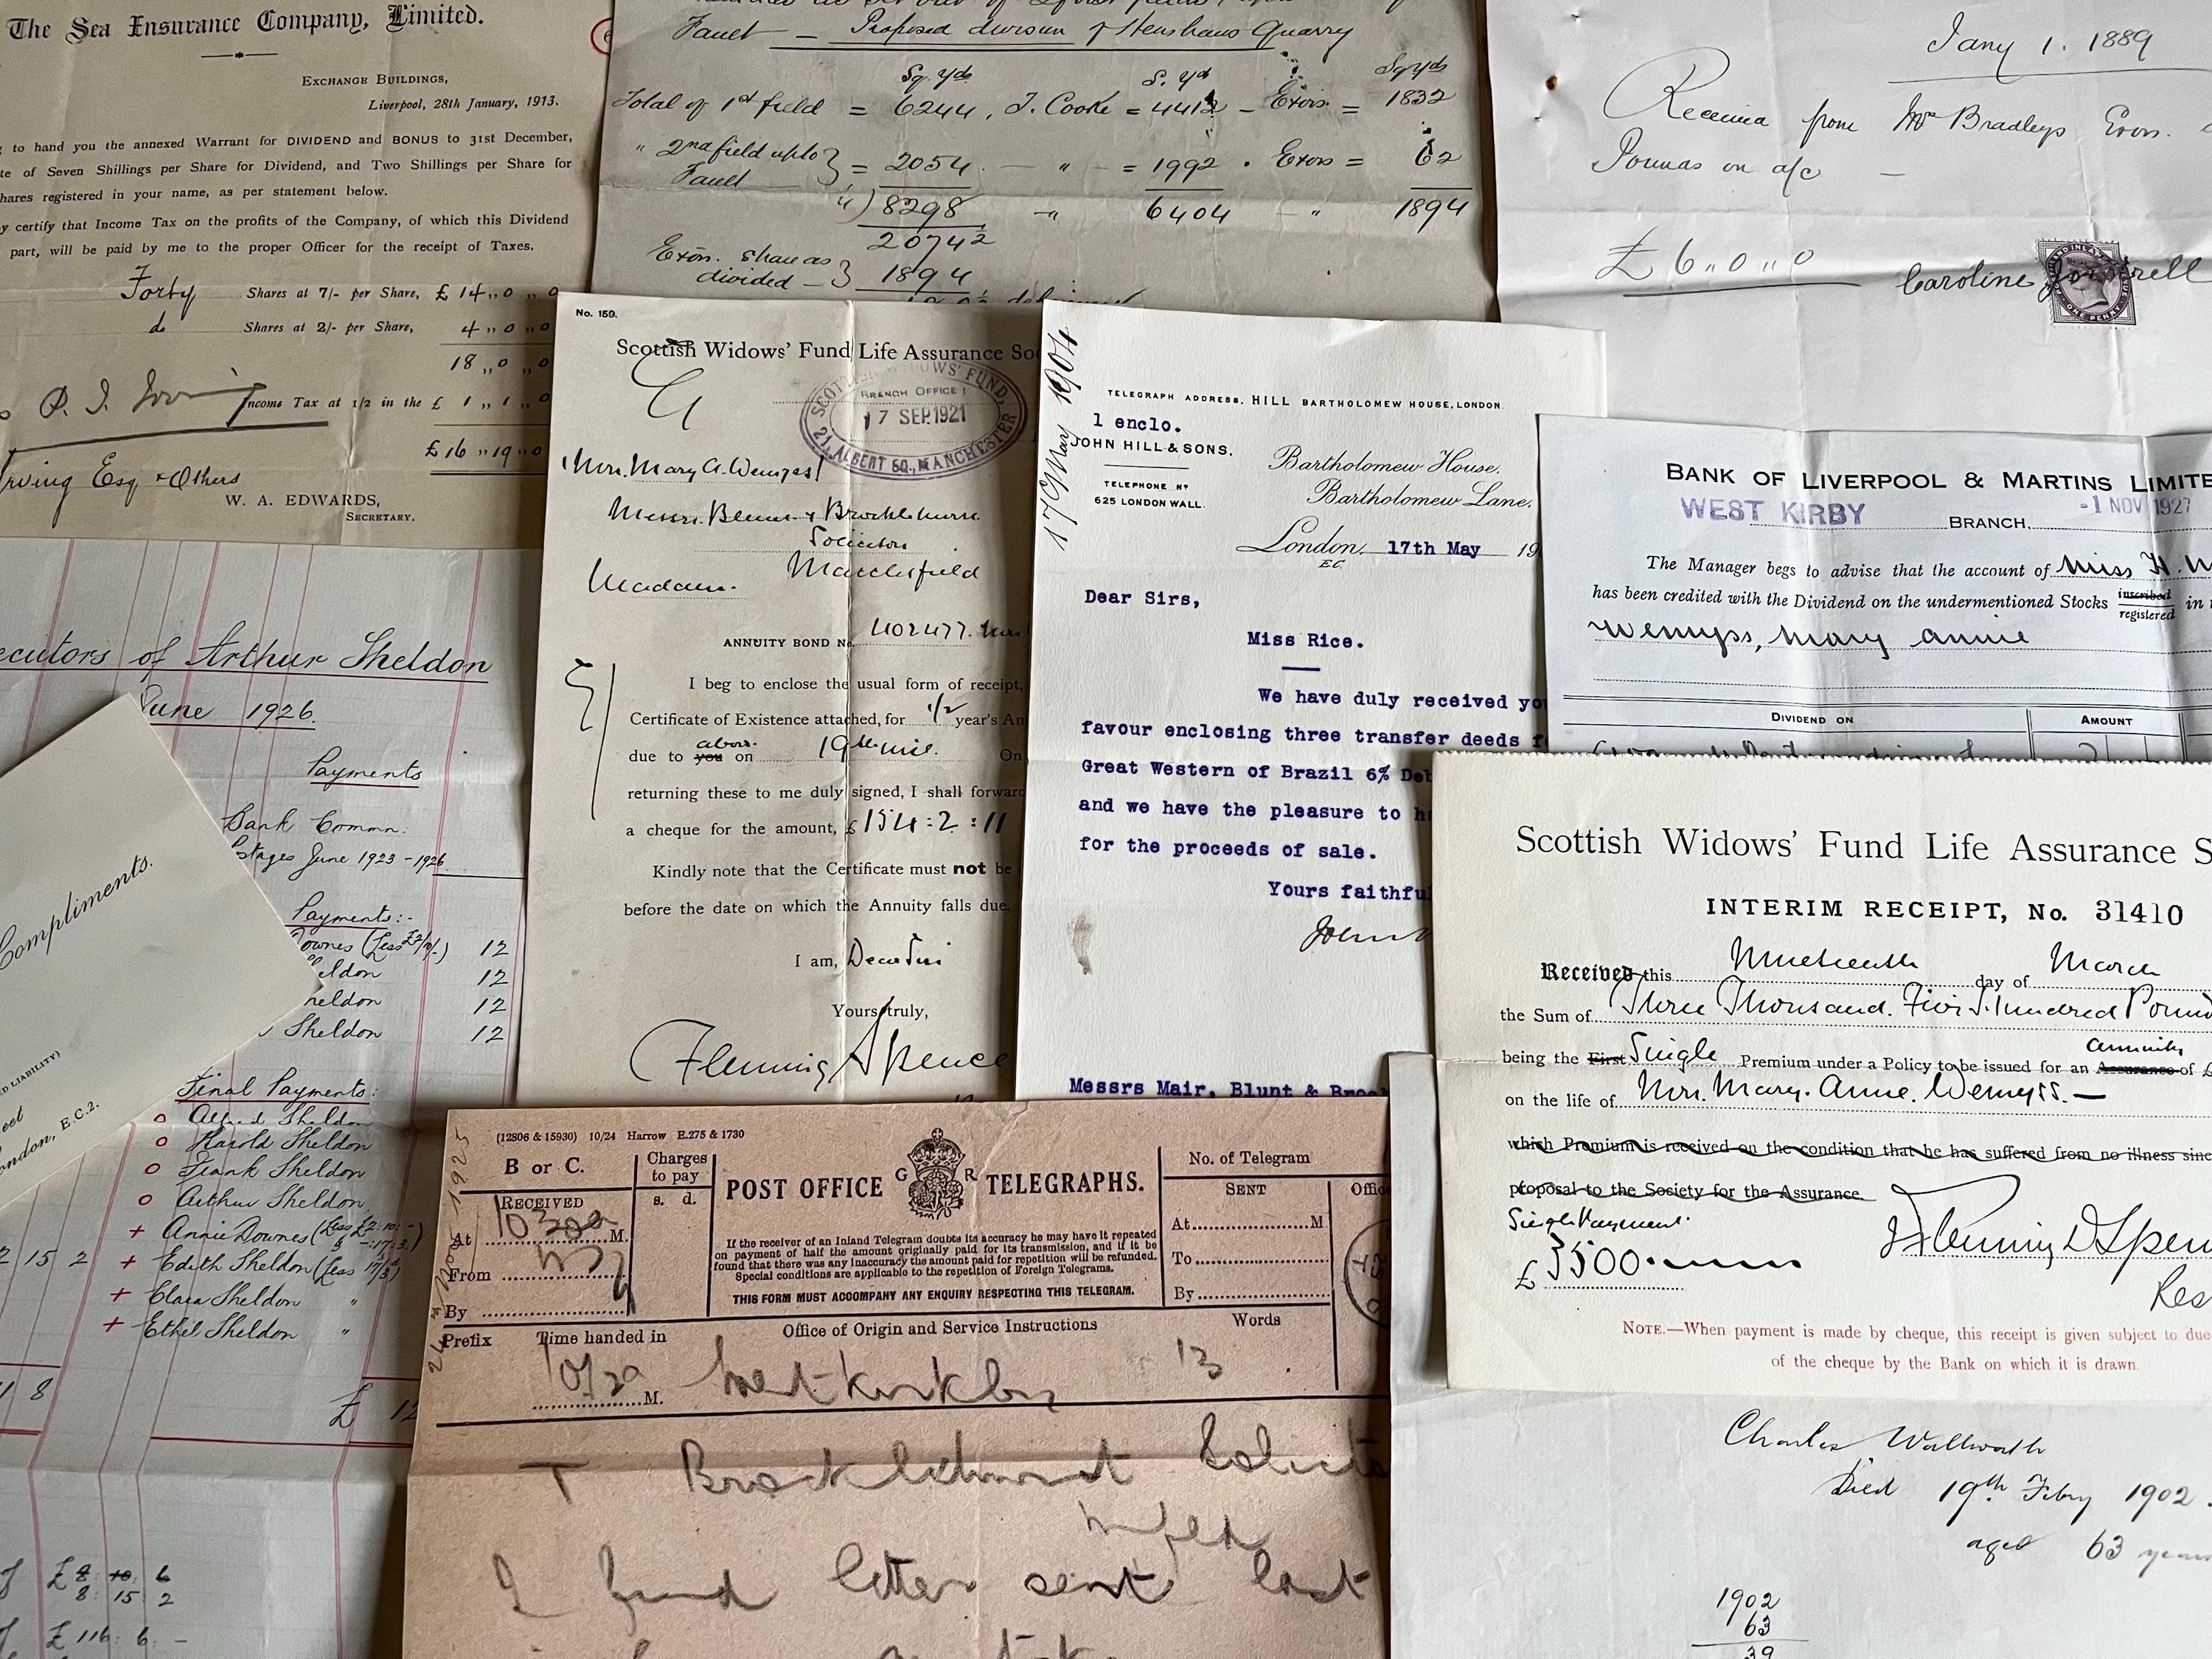 The Sea Insurance Company, Limited.
EXCHANGE BUILDINGS,
Liverpool, 28th January, 1913.
to hand you the annexed Warrant for DIVIDEND and BONUS to 31st December,
te of Seven Shillings per Share for Dividend, and Two Shillings per Share for
hares registered in your name, as per statement below.
y certify that Income Tax on the profits of the Company, of which this Dividend
part, will be paid by me to the proper Officer for the receipt of Taxes.
Forty Shares at 7/- per Share, £ 14 ,, 0 ,, 0
do Shares at 2/- per Share, 4 ,, 0 ,, 0
18 ,, 0 ,, 0
Income Tax at 1/2 in the £ 1 ,, 1 ,, 0
£ 16 ,, 19 ,, 0
rving Esq & Others
W. A. EDWARDS,
SECRETARY.
Fault — Proposed division of Henshaws Quarry
Sq. yds S. yd Sq yds
Total of 1st field = 6244, J. Cooke = 4412 — Exors. = 1832
" 2nd field up to
Fault } = 2054 — " — = 1992 . Exors = 62
4) 8298 " 6404 — " 1894
2074½
Exors. share as
divided — } 1894
Jany 1. 1889
Received from Mr Bradleys Exors.
Pounds on a/c —
£ 6 ,, 0 ,, 0
Caroline
No. 159.
Scottish Widows' Fund Life Assurance So
SCOTTISH WIDOWS' FUND,
BRANCH OFFICE
17 SEP. 1921
21, ALBERT SQ., MANCHESTER
Mrs. Mary A. Wemyss
Messrs. Blunt & Brocklehurst
Solicitors
Macclesfield
Madam.
ANNUITY BOND No. 402477.
I beg to enclose the usual form of receipt,
Certificate of Existence attached, for ½ year's An
due to you above on 19th inst. On
returning these to me duly signed, I shall forward
a cheque for the amount, £154:2:11
Kindly note that the Certificate must not be
before the date on which the Annuity falls due.
I am, Dear Sirs
Yours truly,
Fleming Spence
17th May 1904
TELEGRAPH ADDRESS, HILL BARTHOLOMEW HOUSE, LONDON.
1 enclo.
JOHN HILL & SONS.
TELEPHONE No
625 LONDON WALL.
Bartholomew House,
Bartholomew Lane,
London, 17th May 19
E.C.
Dear Sirs,
Miss Rice.
We have duly received yo
favour enclosing three transfer deeds f
Great Western of Brazil 6% Deb
and we have the pleasure to h
for the proceeds of sale.
Yours faithful
John
Messrs Mair, Blunt & Brock
BANK OF LIVERPOOL & MARTINS LIMITE
WEST KIRBY BRANCH, -1 NOV 1927
The Manager begs to advise that the account of Miss H. W
has been credited with the Dividend on the undermentioned Stocks inscribed registered in
Wemyss, Mary Annie
DIVIDEND ON AMOUNT
ecutors of Arthur Sheldon
June 1926.
Payments
Bank Commn.
stages June 1923 - 1926
Payments:-
Downes (Less 12
eldon 12
heldon 12
Sheldon 12
Final Payments:
Alfred Sheldon
Harold Sheldon
Frank Sheldon
Arthur Sheldon
+ Annie Downes (Less £2:10:-
2 15 2 + Edith Sheldon (Less
+ Clara Sheldon "
+ Ethel Sheldon "
1 8 £ 12
£ 8: 10: 6
8: 15: 2
£ 116: 6: -
Compliments.
ED LIABILITY)
eet
ondon, E.C.2.
Scottish Widows' Fund Life Assurance S
INTERIM RECEIPT, No. 31410
Received this Nineteenth day of March
the Sum of Three Thousand Five Hundred Pound
being the First Single Premium under a Policy to be issued for an Assurance annuity of £
on the life of Mrs. Mary Anne Wemyss. —
which Premium is received on the condition that he has suffered from no illness sinc
proposal to the Society for the Assurance.
Single Payment.
£ 3500
Fleming D Spen
Res
NOTE.—When payment is made by cheque, this receipt is given subject to due
of the cheque by the Bank on which it is drawn.
(12806 & 15930) 10/24 Harrow E.275 & 1730
B or C.
Charges
to pay
s. d.
POST OFFICE G R TELEGRAPHS.
No. of Telegram
RECEIVED
At M.
From
By
If the receiver of an Inland Telegram doubts its accuracy he may have it repeated
on payment of half the amount originally paid for its transmission, and if it be
found that there was any inaccuracy the amount paid for repetition will be refunded.
Special conditions are applicable to the repetition of Foreign Telegrams.
THIS FORM MUST ACCOMPANY ANY ENQUIRY RESPECTING THIS TELEGRAM.
SENT
At M.
To
By
Offic
Prefix Time handed in Office of Origin and Service Instructions Words
10/20 M. West Kirkby 13
T Brocklehurst Solicito
I find letter sent last
Charles Wallworth
Died 19th Feby 1902.
aged 63 years
1902
63
39